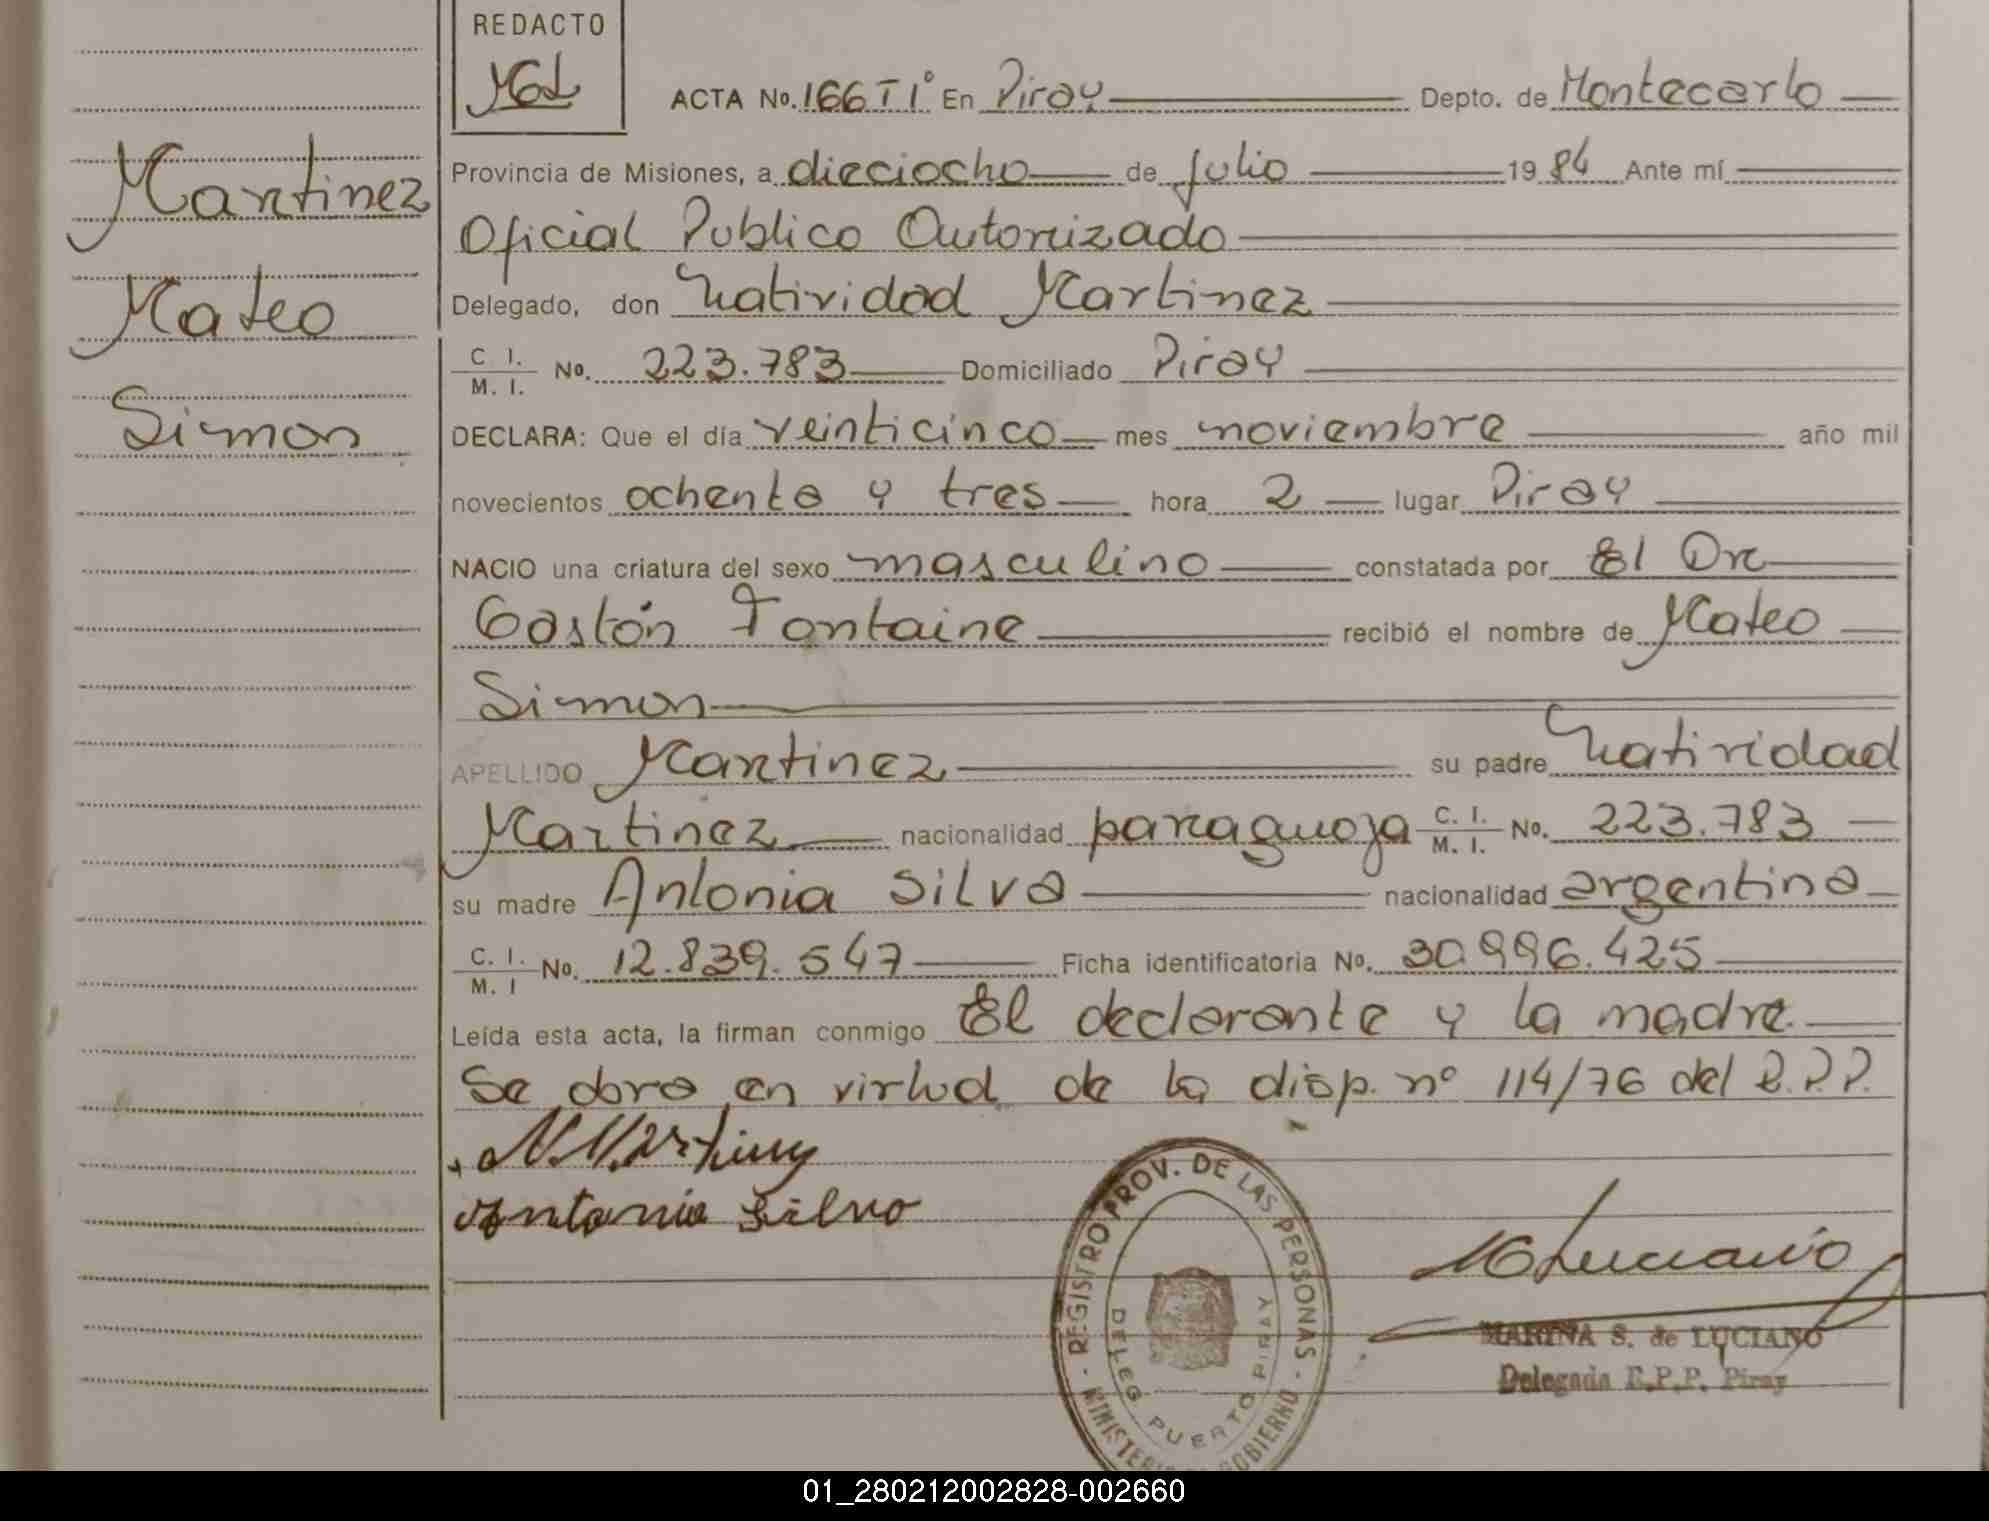 REDACTO
MGL
ACTA No. 166 T 1° En Piray Depto. de Montecarlo
Provincia de Misiones, a dieciocho de julio 1984 Ante mí
Oficial Publico Autorizado
Delegado, don Natividad Martinez
C. I. / M. I. No. 223.783 Domiciliado Piray
DECLARA: Que el día veinticinco mes noviembre año mil
novecientos ochenta y tres hora 2 lugar Piray
NACIO una criatura del sexo masculino constatada por El Dr
Gastón Fontaine recibió el nombre de Mateo
Simon
APELLIDO Martinez su padre Natividad
Martinez nacionalidad paraguaja C. I. / M. I. No. 223.783
su madre Antonia Silva nacionalidad argentina
C. I. / M. I No. 12.839.547 Ficha identificatoria No. 30.996.425
Leída esta acta, la firman conmigo El declarante y la madre.
Se obra en virtud de la disp. nº 114/76 del R.P.P.
N. Martinez
Antonia Silva
Martinez
Mateo
Simon
REGISTRO PROV. DE LAS PERSONAS
MINISTERIO GOBIERNO
DELEG. PUERTO PIRAY
M Luciano
MARINA S. de LUCIANO
Delegada R.P.P. Piray
01_280212002828-002660